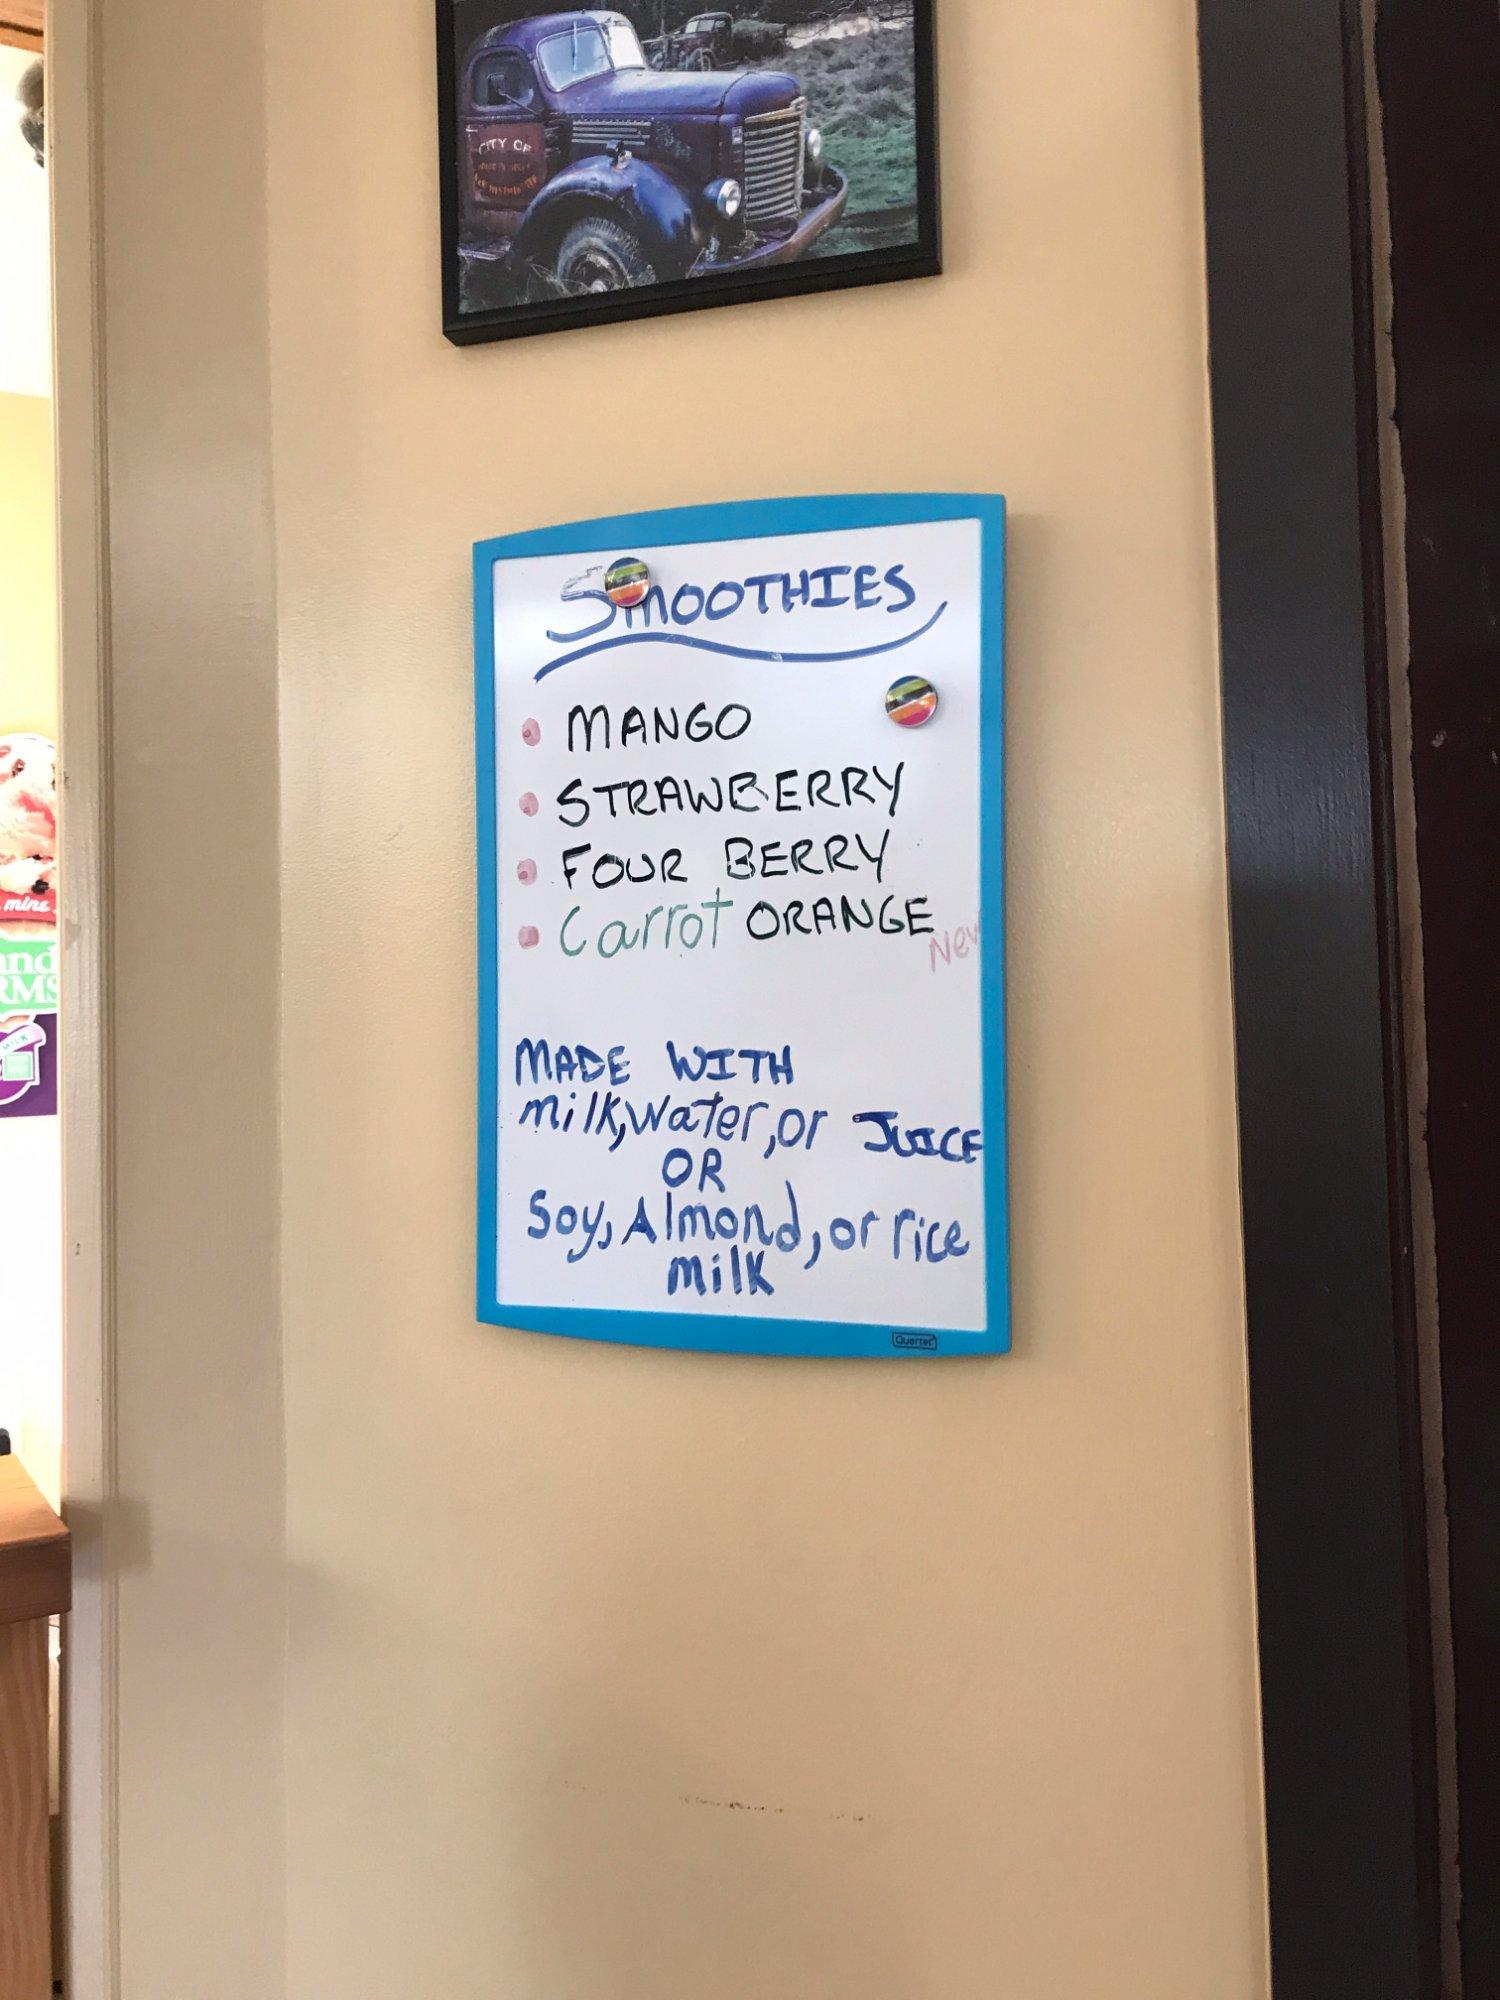 CITY OF
SMOOTHIES
MANGO
STRAWBERRY
FOUR BERRY
Carrot ORANGE
New
MADE WITH
milk, water, or JUICE
OR
Soy, Almond, or rice
milk
Quartet
mine
MILK